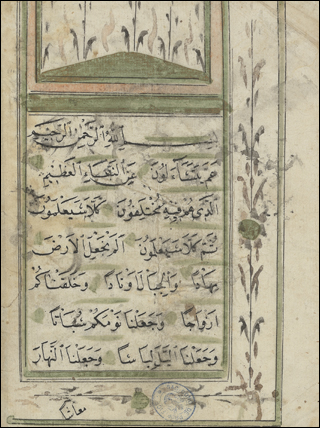 بسم الله الرحمن الرحيم
عم يتساءلون عن النباء العظيم
الذي هم فيه مختلفون كلا سيعلمون
ثم كلا سيعلمون الم نجعل الارض
مهادا والجبال اوتادا وخلقناكم
ازواجا وجعلنا نومكم سباتا
وجعلنا الليل لباسا وجعلنا النهار
معاشا